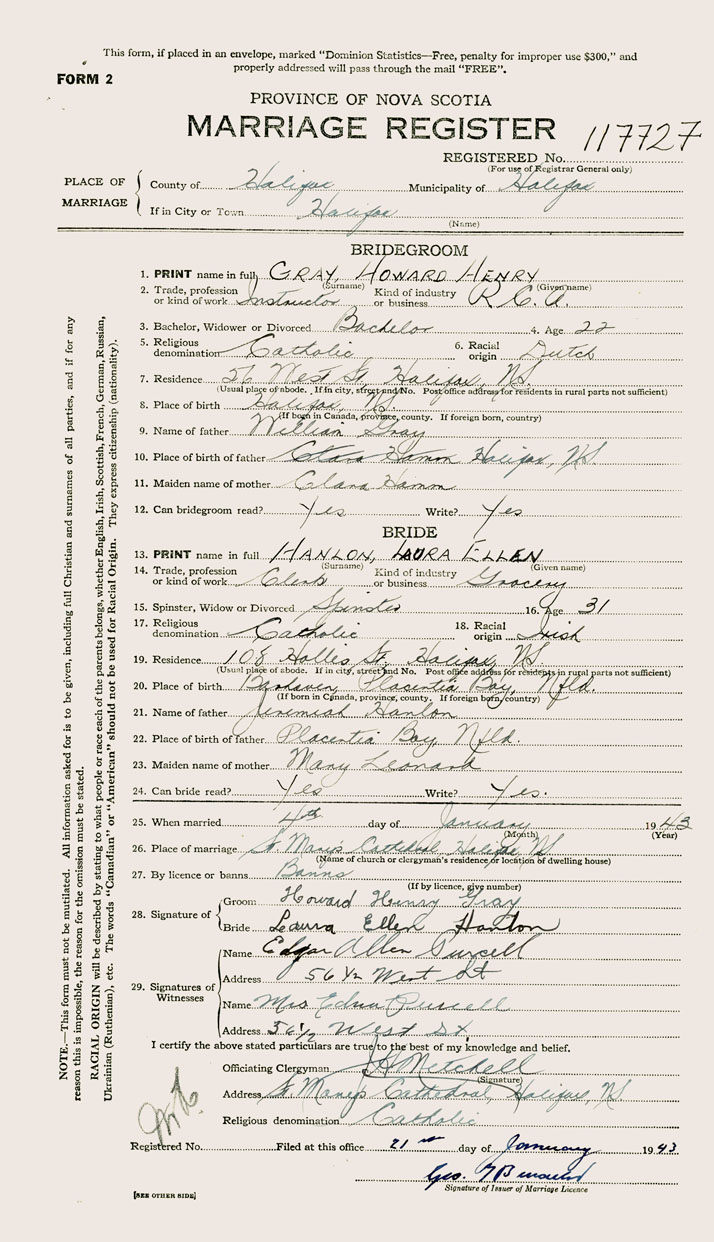 This form, if placed in an envelope, marked "Dominion Statistics—Free, penalty for improper use $300," and
properly addressed will pass through the mail "FREE".
FORM 2
PROVINCE OF NOVA SCOTIA
MARRIAGE REGISTER 117727
REGISTERED No.
(For use of Registrar General only)
PLACE OF MARRIAGE
County of Halifax Municipality of Halifax
If in City or Town Halifax
(Name)
BRIDEGROOM
1. PRINT name in full GRAY, HOWARD HENRY
(Surname) (Given name)
2. Trade, profession or kind of work Instructor Kind of industry or business R.C.A.
3. Bachelor, Widower or Divorced Bachelor 4. Age 22
5. Religious denomination Catholic 6. Racial origin Dutch
7. Residence 56 West St, Halifax, N.S.
(Usual place of abode. If in city, street and No. Post office address for residents in rural parts not sufficient)
8. Place of birth Halifax, N.S.
(If born in Canada, province, county. If foreign born, country)
9. Name of father William Gray
10. Place of birth of father Clara Hamm Halifax, N.S.
11. Maiden name of mother Clara Hamm
12. Can bridegroom read? Yes Write? Yes
BRIDE
13. PRINT name in full HANLON, LAURA ELLEN
(Surname) (Given name)
14. Trade, profession or kind of work Clerk Kind of industry or business Grocery
15. Spinster, Widow or Divorced Spinster 16. Age 31
17. Religious denomination Catholic 18. Racial origin Irish
19. Residence 108 Hollis St, Halifax, NS
(Usual place of abode. If in city, street and No. Post office address for residents in rural parts not sufficient)
20. Place of birth Placentia Bay, Nfld.
(If born in Canada, province, county. If foreign born, country)
21. Name of father Jeremiah Hanlon
22. Place of birth of father Placentia Bay, Nfld.
23. Maiden name of mother Mary Leonard
24. Can bride read? Yes Write? Yes.
25. When married 4th day of January 1943
(Month) (Year)
26. Place of marriage St. Mary's Cathedral Halifax NS
(Name of church or clergyman's residence or location of dwelling house)
27. By licence or banns Banns
(If by licence, give number)
28. Signature of
Groom Howard Henry Gray
Bride Laura Ellen Hanlon
29. Signatures of Witnesses
Name Edgar Allen Purcell
Address 56 1/2 West St
Name Mrs Edna Purcell
Address 56 1/2 West St.
I certify the above stated particulars are true to the best of my knowledge and belief.
Officiating Clergyman Mitchell
(Signature)
Address St Mary's Cathedral, Halifax, N.S.
Religious denomination Catholic
Registered No. Filed at this office 21st day of January 1943
Geo.
Signature of Issuer of Marriage Licence
[SEE OTHER SIDE]
NOTE.—This form must not be mutilated. All information asked for is to be given, including full Christian and surnames of all parties, and if for any
reason this is impossible, the reason for the omission must be stated.
RACIAL ORIGIN will be described by stating to what people or race each of the parents belongs, whether English, Irish, Scottish, French, German, Russian,
Ukrainian (Ruthenian), etc. The words "Canadian" or "American" should not be used for Racial Origin. They express citizenship (nationality).